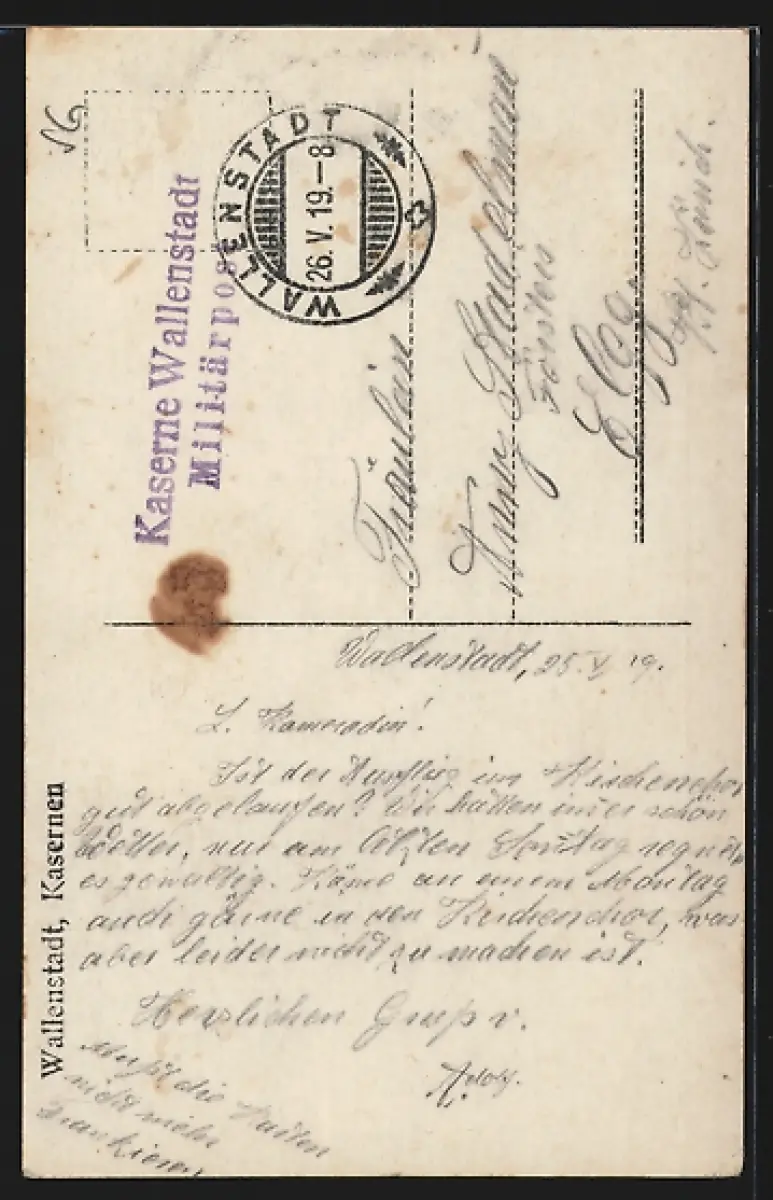 Wallenstadt, 25. V. 19.
L. Kameradin!
Ist der Ausflug im Kirchenchor
gut abgelaufen? Wir hatten immer schön
Wetter, nur am letzten Sonntag regnete
es gewaltig. Käme an einem Montag
auch gärne in den Kirchenchor, was
aber leider nicht zu machen ist.
Herzlichen Gruss v.
Adolf.
Musst die Karten
nicht mehr
frankieren
Wallenstadt, Kasernen
Kaserne Wallenstadt
Militärpost
WALLENSTADT
26. V. 19. – 8
Fräulein
Stadelmann
Försters
Elgg
Kt. Zürich.